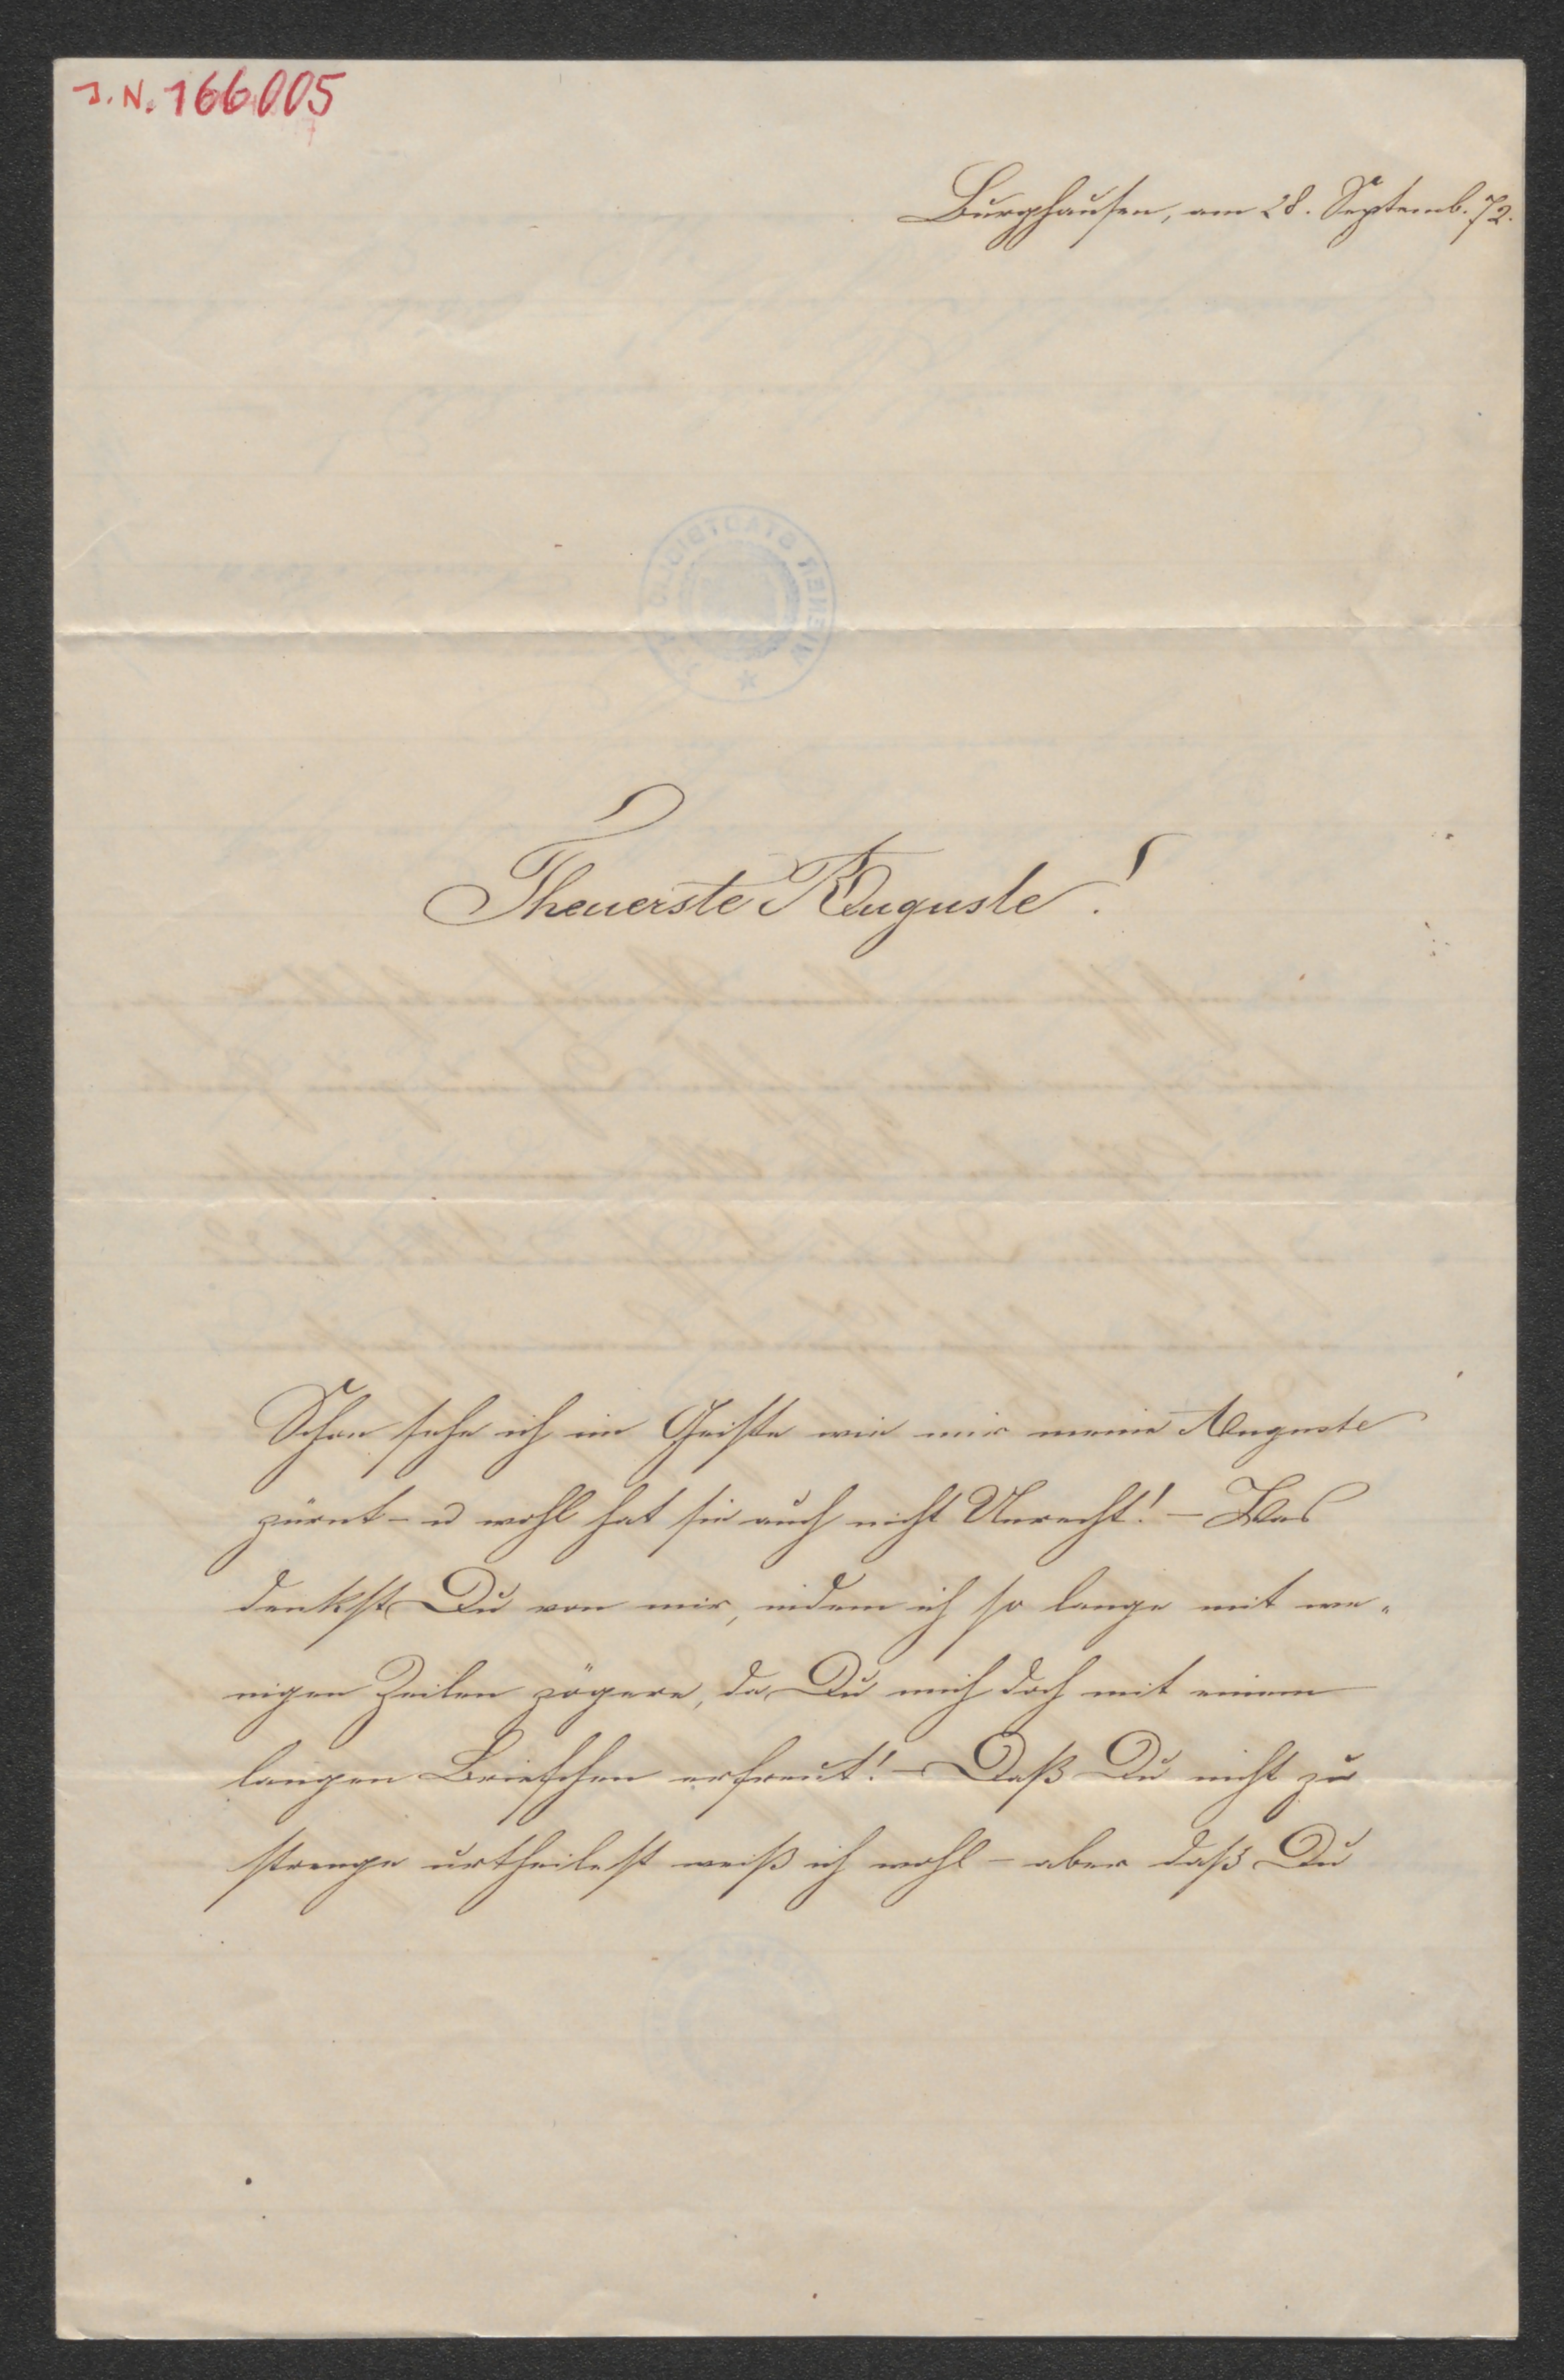 J. N. 166005
Burghausen, am 28. Septemb. 72.
Theuerste Auguste!
Schon sehe ich im Geiste wie mir meine Auguste
zürnt - u wohl hat sie auch nicht Unrecht! - Was
denkst Du von mir, indem ich so lange mit we-
nigen Zeilen zögere, da Du mich doch mit einem
langen Briefchen erfreut! - Daß Du nicht zu
strenge urtheilest weiß ich wohl - aber daß Du